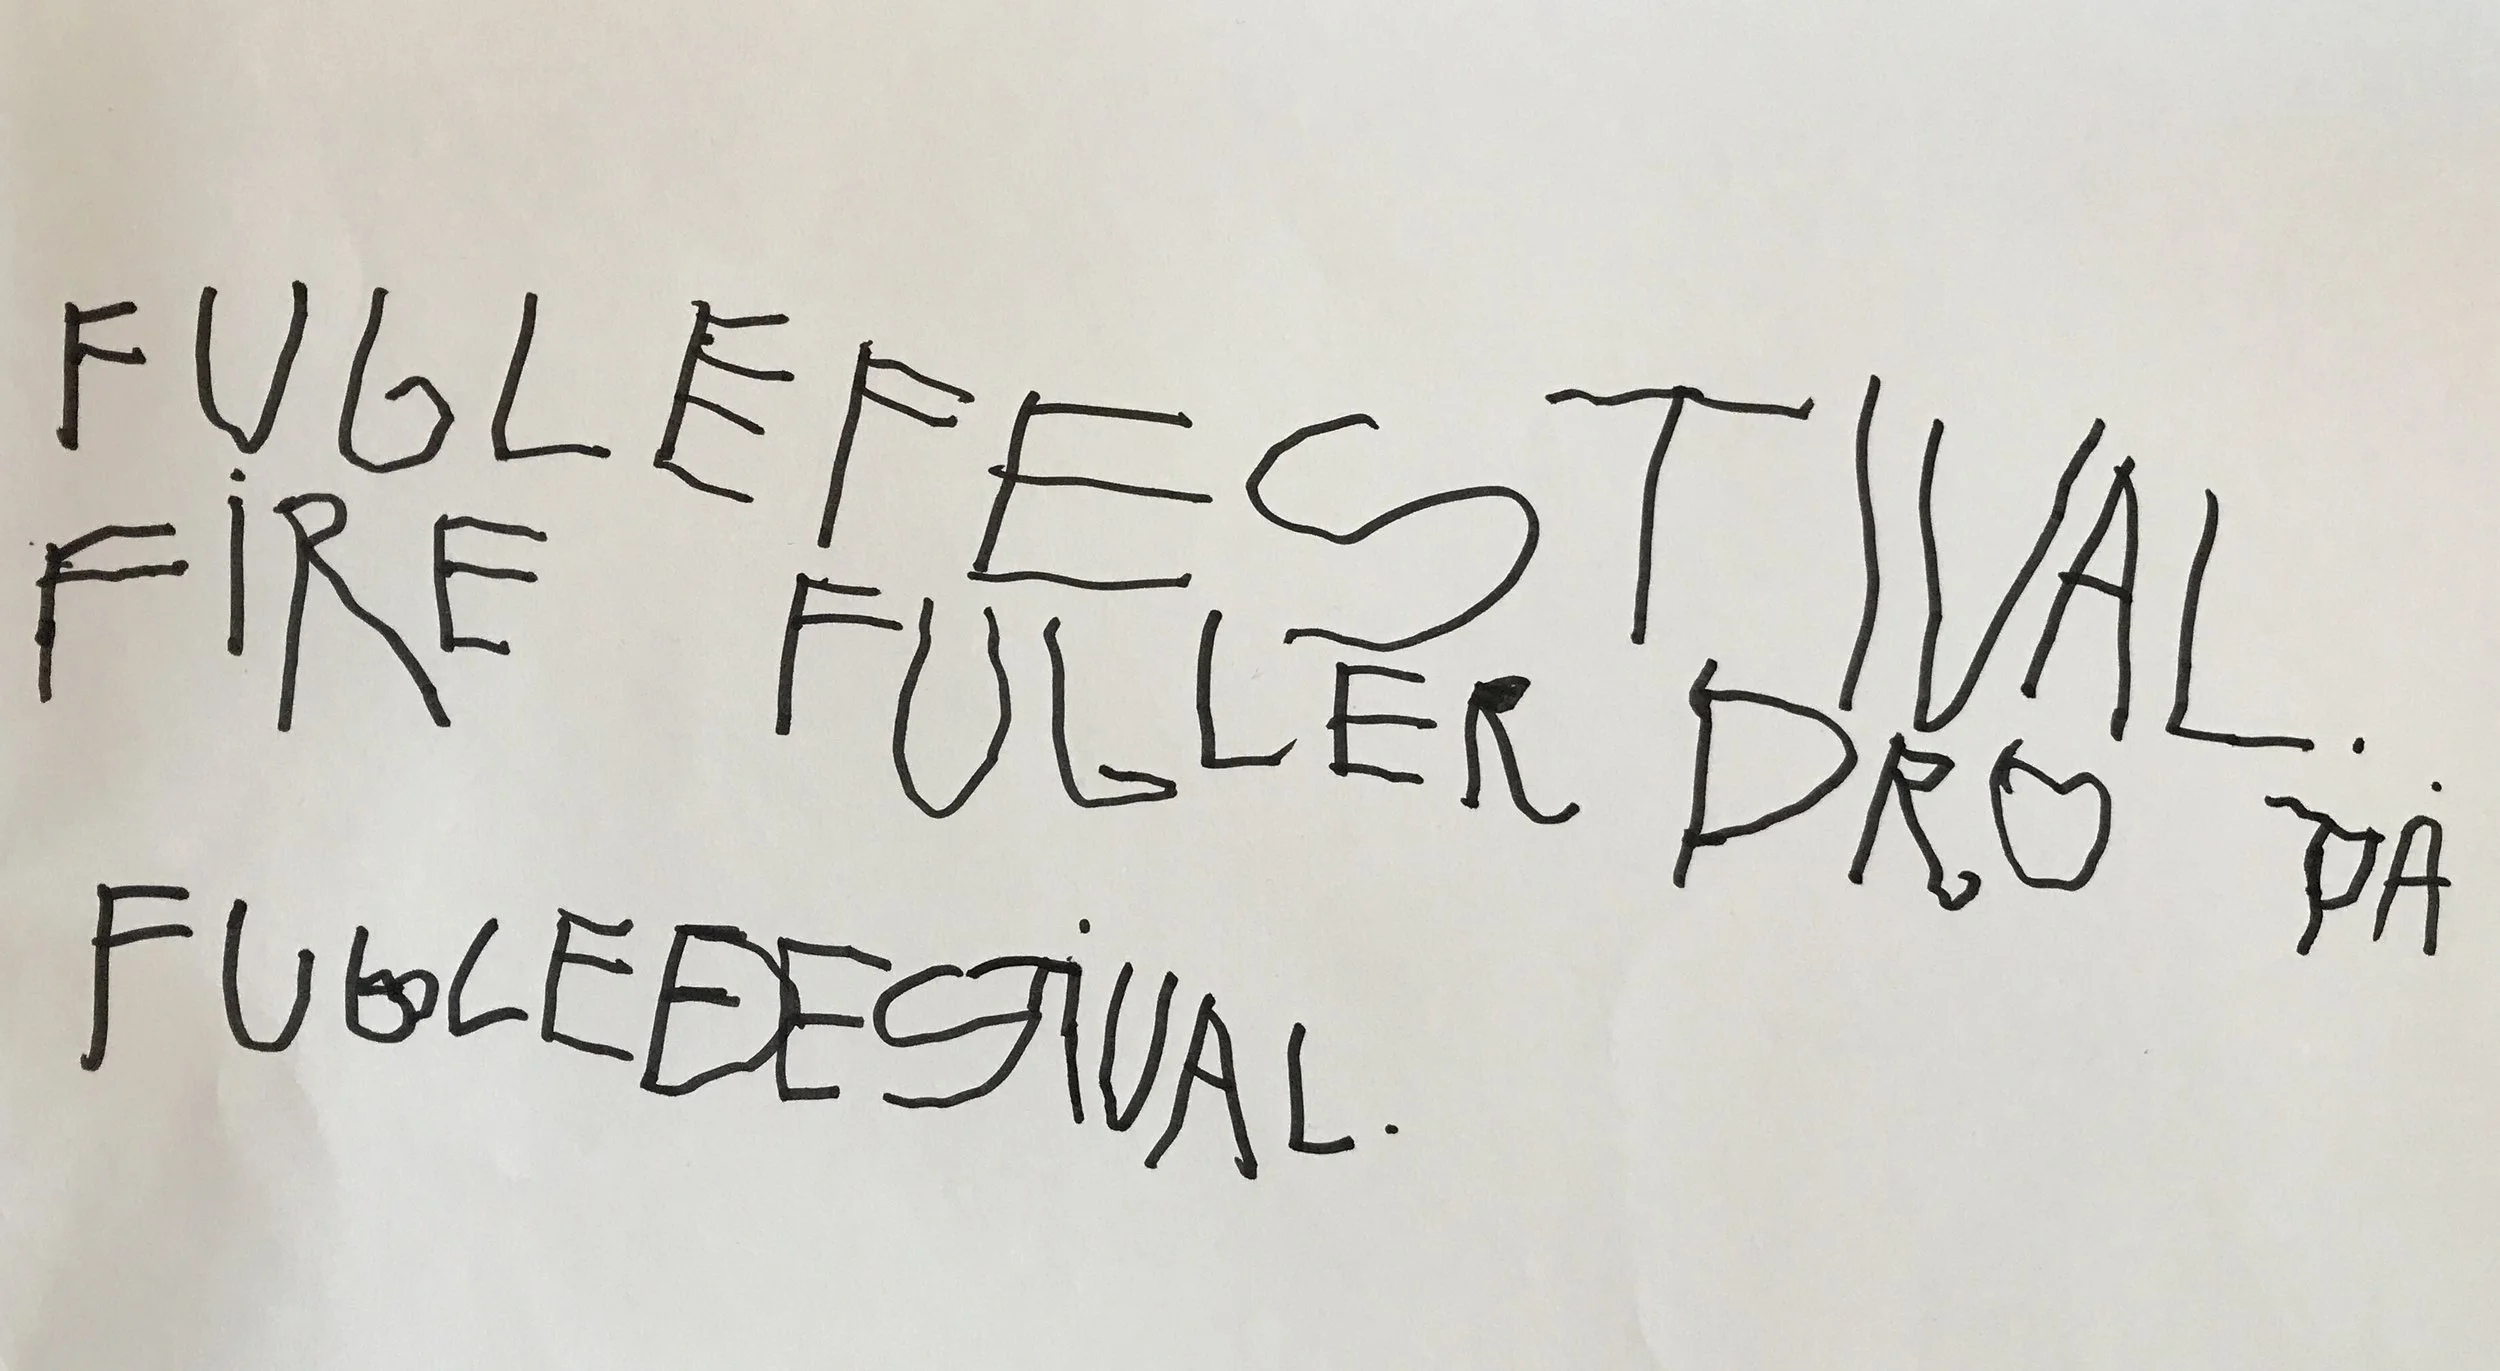 FUGLEFESTIVAL.
FiRE FUGLER DRO PÅ
FUGLEFESTiVAL.